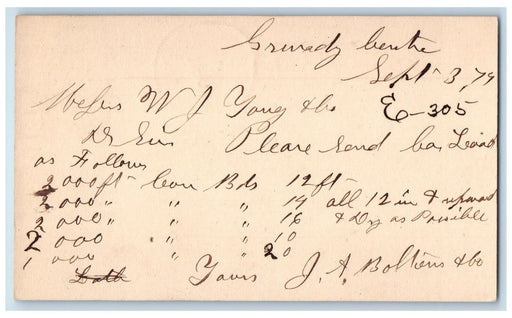 Grundy Centre
Sept 3, 79
Messrs W J Young & Co
E-305
Dr Sirs Please send Car Load
as Follows
2 000 ft Com Bds 12 ft
2 000 " " " 14 all 12 in & upward
2 000 " " " 16 & Dry as Possible
2 000 " " " 18
1 000 " " " 20
Lath Yours J. A. Boltiens & Co